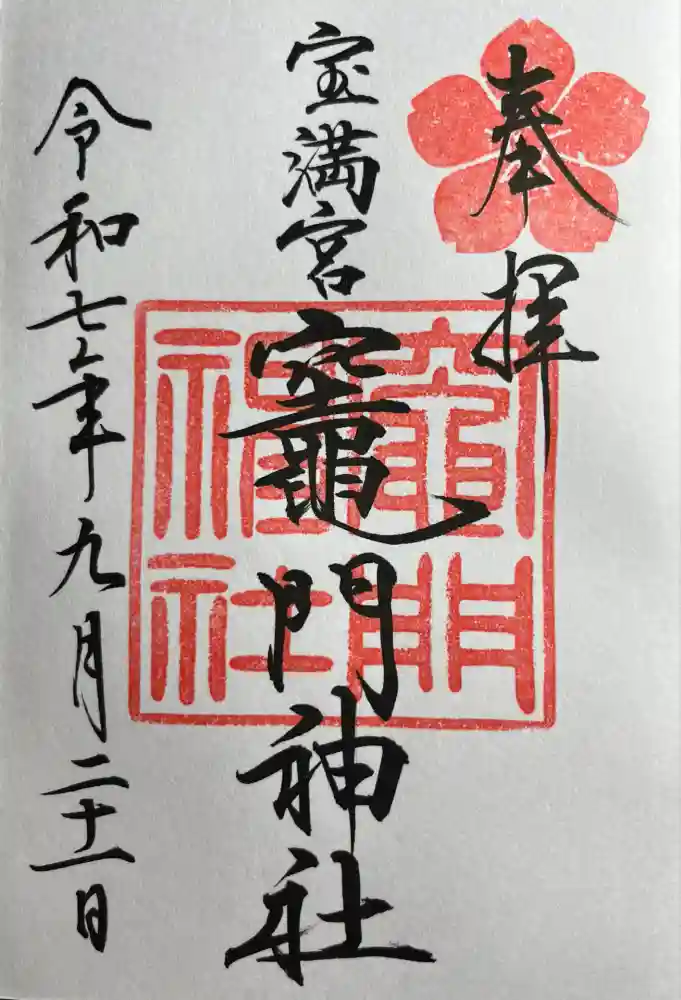 奉拝
宝満宮
竈門神社
竈門神社
令和七年九月二十一日